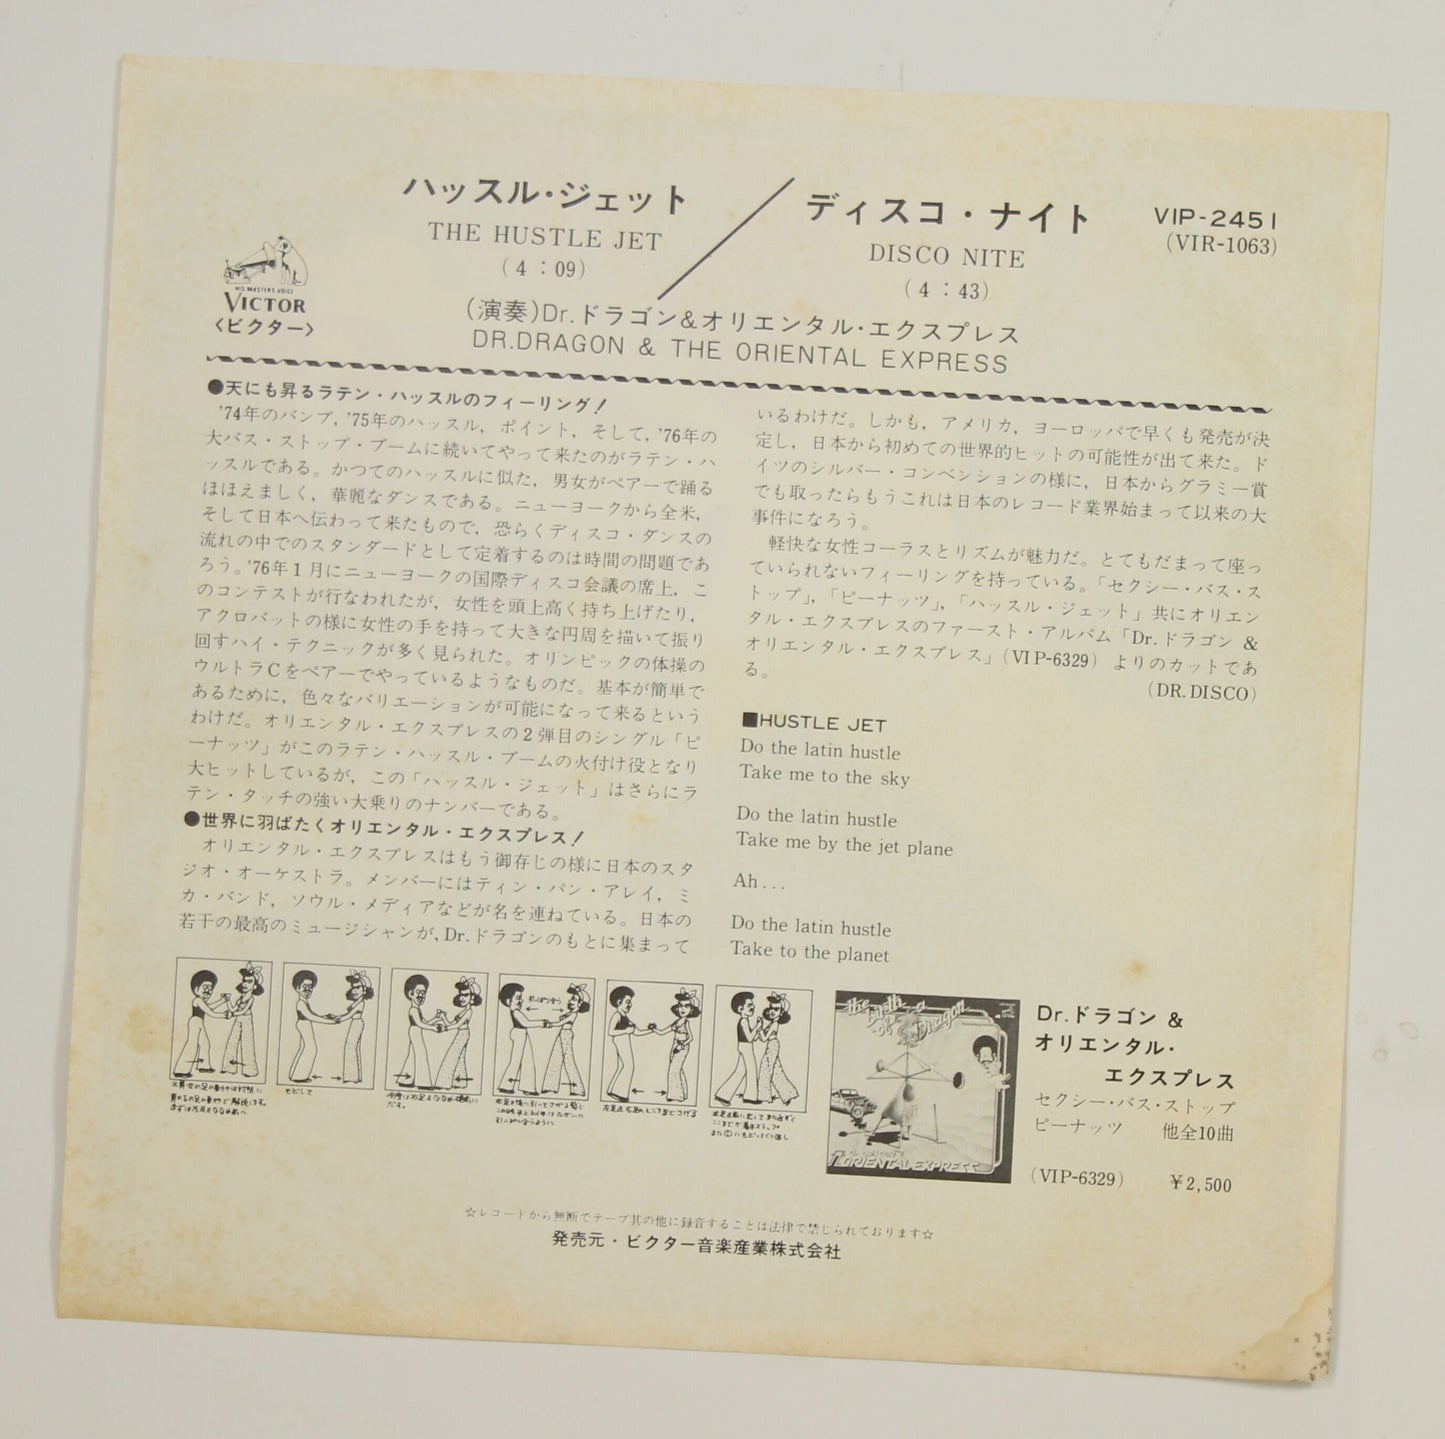 ハッスル・ジェット
THE HUSTLE JET
(4:09)
ディスコ・ナイト
DISCO NITE
(4:43)
VIP-2451
(VIR-1063)
HIS MASTER'S VOICE
VICTOR
〈ビクター〉
(演奏)Dr.ドラゴン&オリエンタル・エクスプレス
DR.DRAGON & THE ORIENTAL EXPRESS
●天にも昇るラテン・ハッスルのフィーリング！
'74年のバンプ, '75年のハッスル，ポイント，そして, '76年の
大バス・ストップ・ブームに続いてやって来たのがラテン・ハ
ッスルである。かつてのハッスルに似た，男女がペアーで踊る
ほほえましく，華麗なダンスである。ニューヨークから全米，
そして日本へ伝わって来たもので，恐らくディスコ・ダンスの
流れの中でのスタンダードとして定着するのは時間の問題であ
ろう。'76年1月にニューヨークの国際ディスコ会議の席上，こ
のコンテストが行なわれたが，女性を頭上高く持ち上げたり，
アクロバットの様に女性の手を持って大きな円周を描いて振り
回すハイ・テクニックが多く見られた。オリンピックの体操の
ウルトラCをペアーでやっているようなものだ。基本が簡単で
あるために，色々なバリエーションが可能になって来るという
わけだ。オリエンタル・エクスプレスの2弾目のシングル「ピ
ーナッツ」がこのラテン・ハッスル・ブームの火付け役となり
大ヒットしているが，この「ハッスル・ジェット」はさらにラ
テン・タッチの強い大乗りのナンバーである。
●世界に羽ばたくオリエンタル・エクスプレス！
オリエンタル・エクスプレスはもう御存じの様に日本のスタ
ジオ・オーケストラ。メンバーにはティン・パン・アレイ，ミ
カ・バンド，ソウル・メディアなどが名を連ねている。日本の
若干の最高のミュージシャンが, Dr.ドラゴンのもとに集まって
いるわけだ。しかも，アメリカ，ヨーロッパで早くも発売が決
定し，日本から初めての世界的ヒットの可能性が出て来た。ド
イツのシルバー・コンベンションの様に，日本からグラミー賞
でも取ったらもうこれは日本のレコード業界始まって以来の大
事件になろう。
軽快な女性コーラスとリズムが魅力だ。とてもだまって座っ
ていられないフィーリングを持っている。「セクシー・バス・ス
トップ」，「ピーナッツ」，「ハッスル・ジェット」共にオリエン
タル・エクスプレスのファースト・アルバム「Dr.ドラゴン &
オリエンタル・エクスプレス」(VIP-6329) よりのカットであ
る。
(DR.DISCO)
■HUSTLE JET
Do the latin hustle
Take me to the sky
Do the latin hustle
Take me by the jet plane
Ah...
Do the latin hustle
Take to the planet
引っぱり合う
もどして
Dr.ドラゴン &
オリエンタル・
エクスプレス
セクシー・バス・ストップ
ピーナッツ　他全10曲
(VIP-6329)　¥2,500
ORIENTAL EXPRESS
☆レコードから無断でテープ其の他に録音することは法律で禁じられております☆
発売元・ビクター音楽産業株式会社